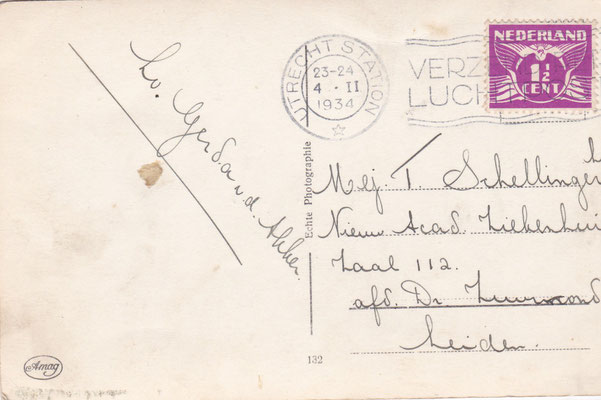 NEDERLAND
1½
CENT
UTRECHT STATION
23-24
4 · II
1934
VERZ
LUCH
hv. Gerda v.d. Akker.
Echte Photographie
Mej. T. Schellinger
Nieuw Acad. Ziekenhui
Zaal 112.
afd. Dr.
Leiden.
132
Amag